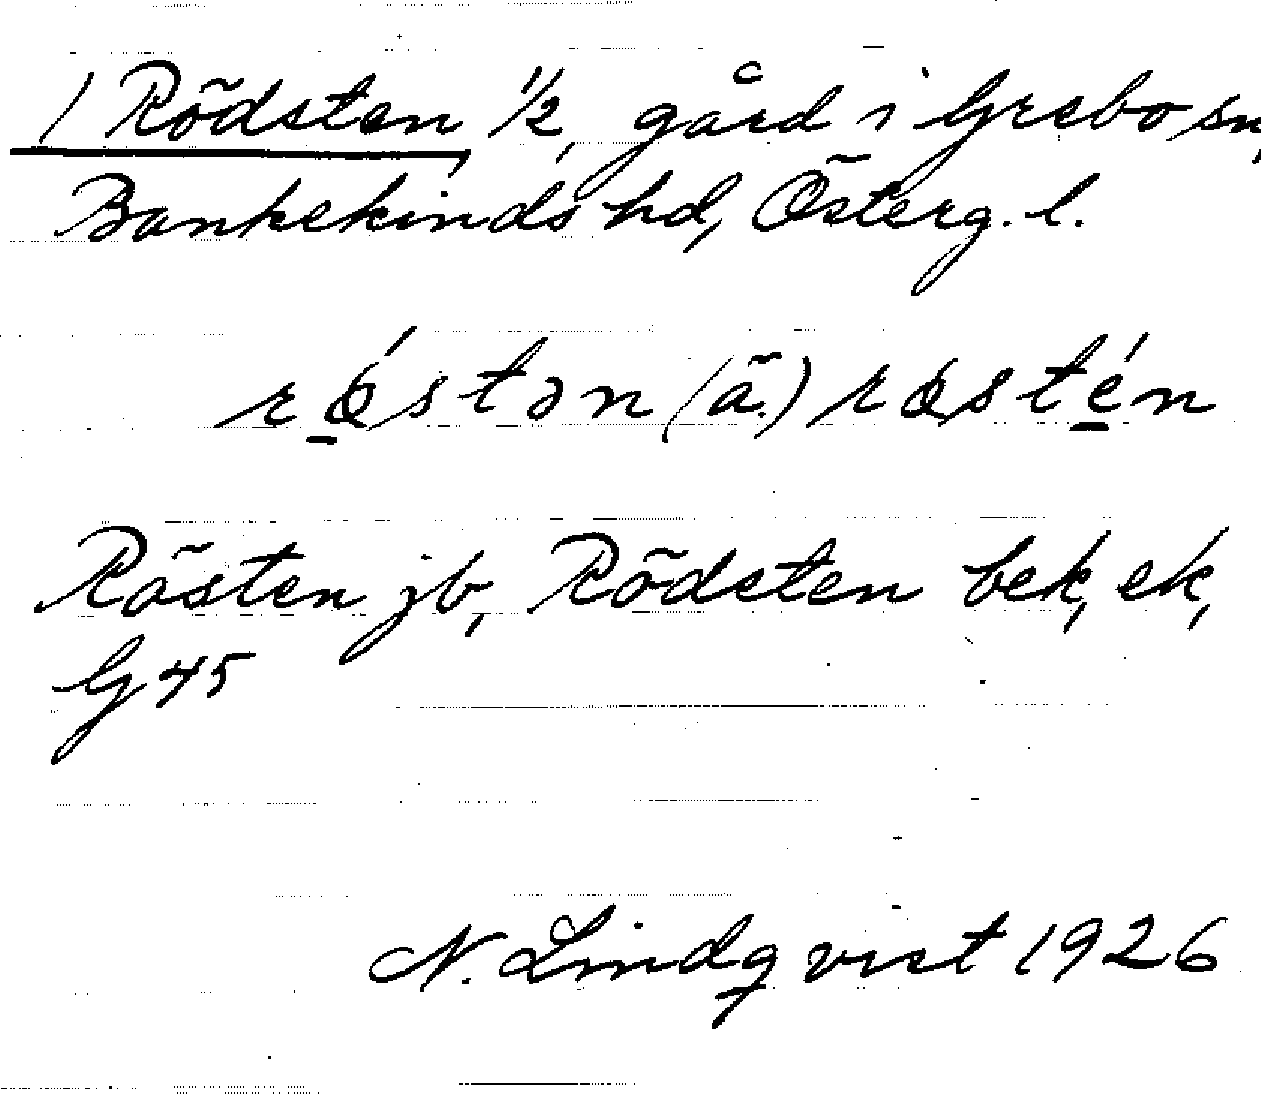 1 Rödsten, 1/2, gård i Grebo sn,
Bankekinds hd, Österg. l.
rǿstən (ä.) røstén
Rösten jb, Rödsten bek, ek,
G 45
N. Lindqvist 1926